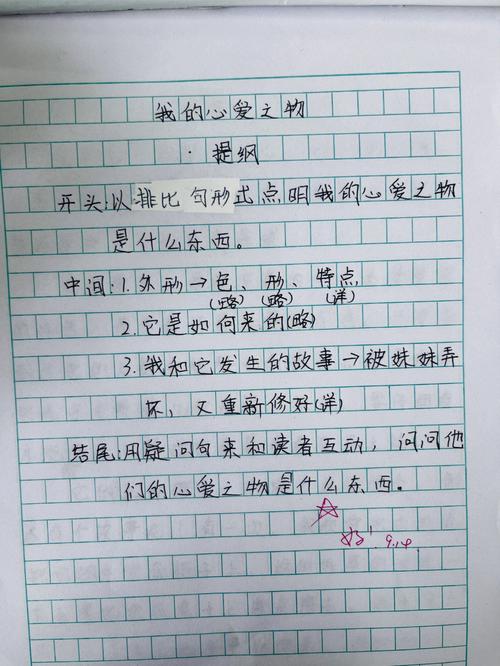 我的心爱之物
·提纲
开头:以排比句形式点明我的心爱之物
是什么东西。
中间:1.外形→色、形、特点
(略)(略)(详)
2.它是如何来的(略)
3.我和它发生的故事→被妹妹弄
坏,又重新修好(详)
结尾:用疑问句来和读者互动,问问他
们的心爱之物是什么东西。
好!9.14.